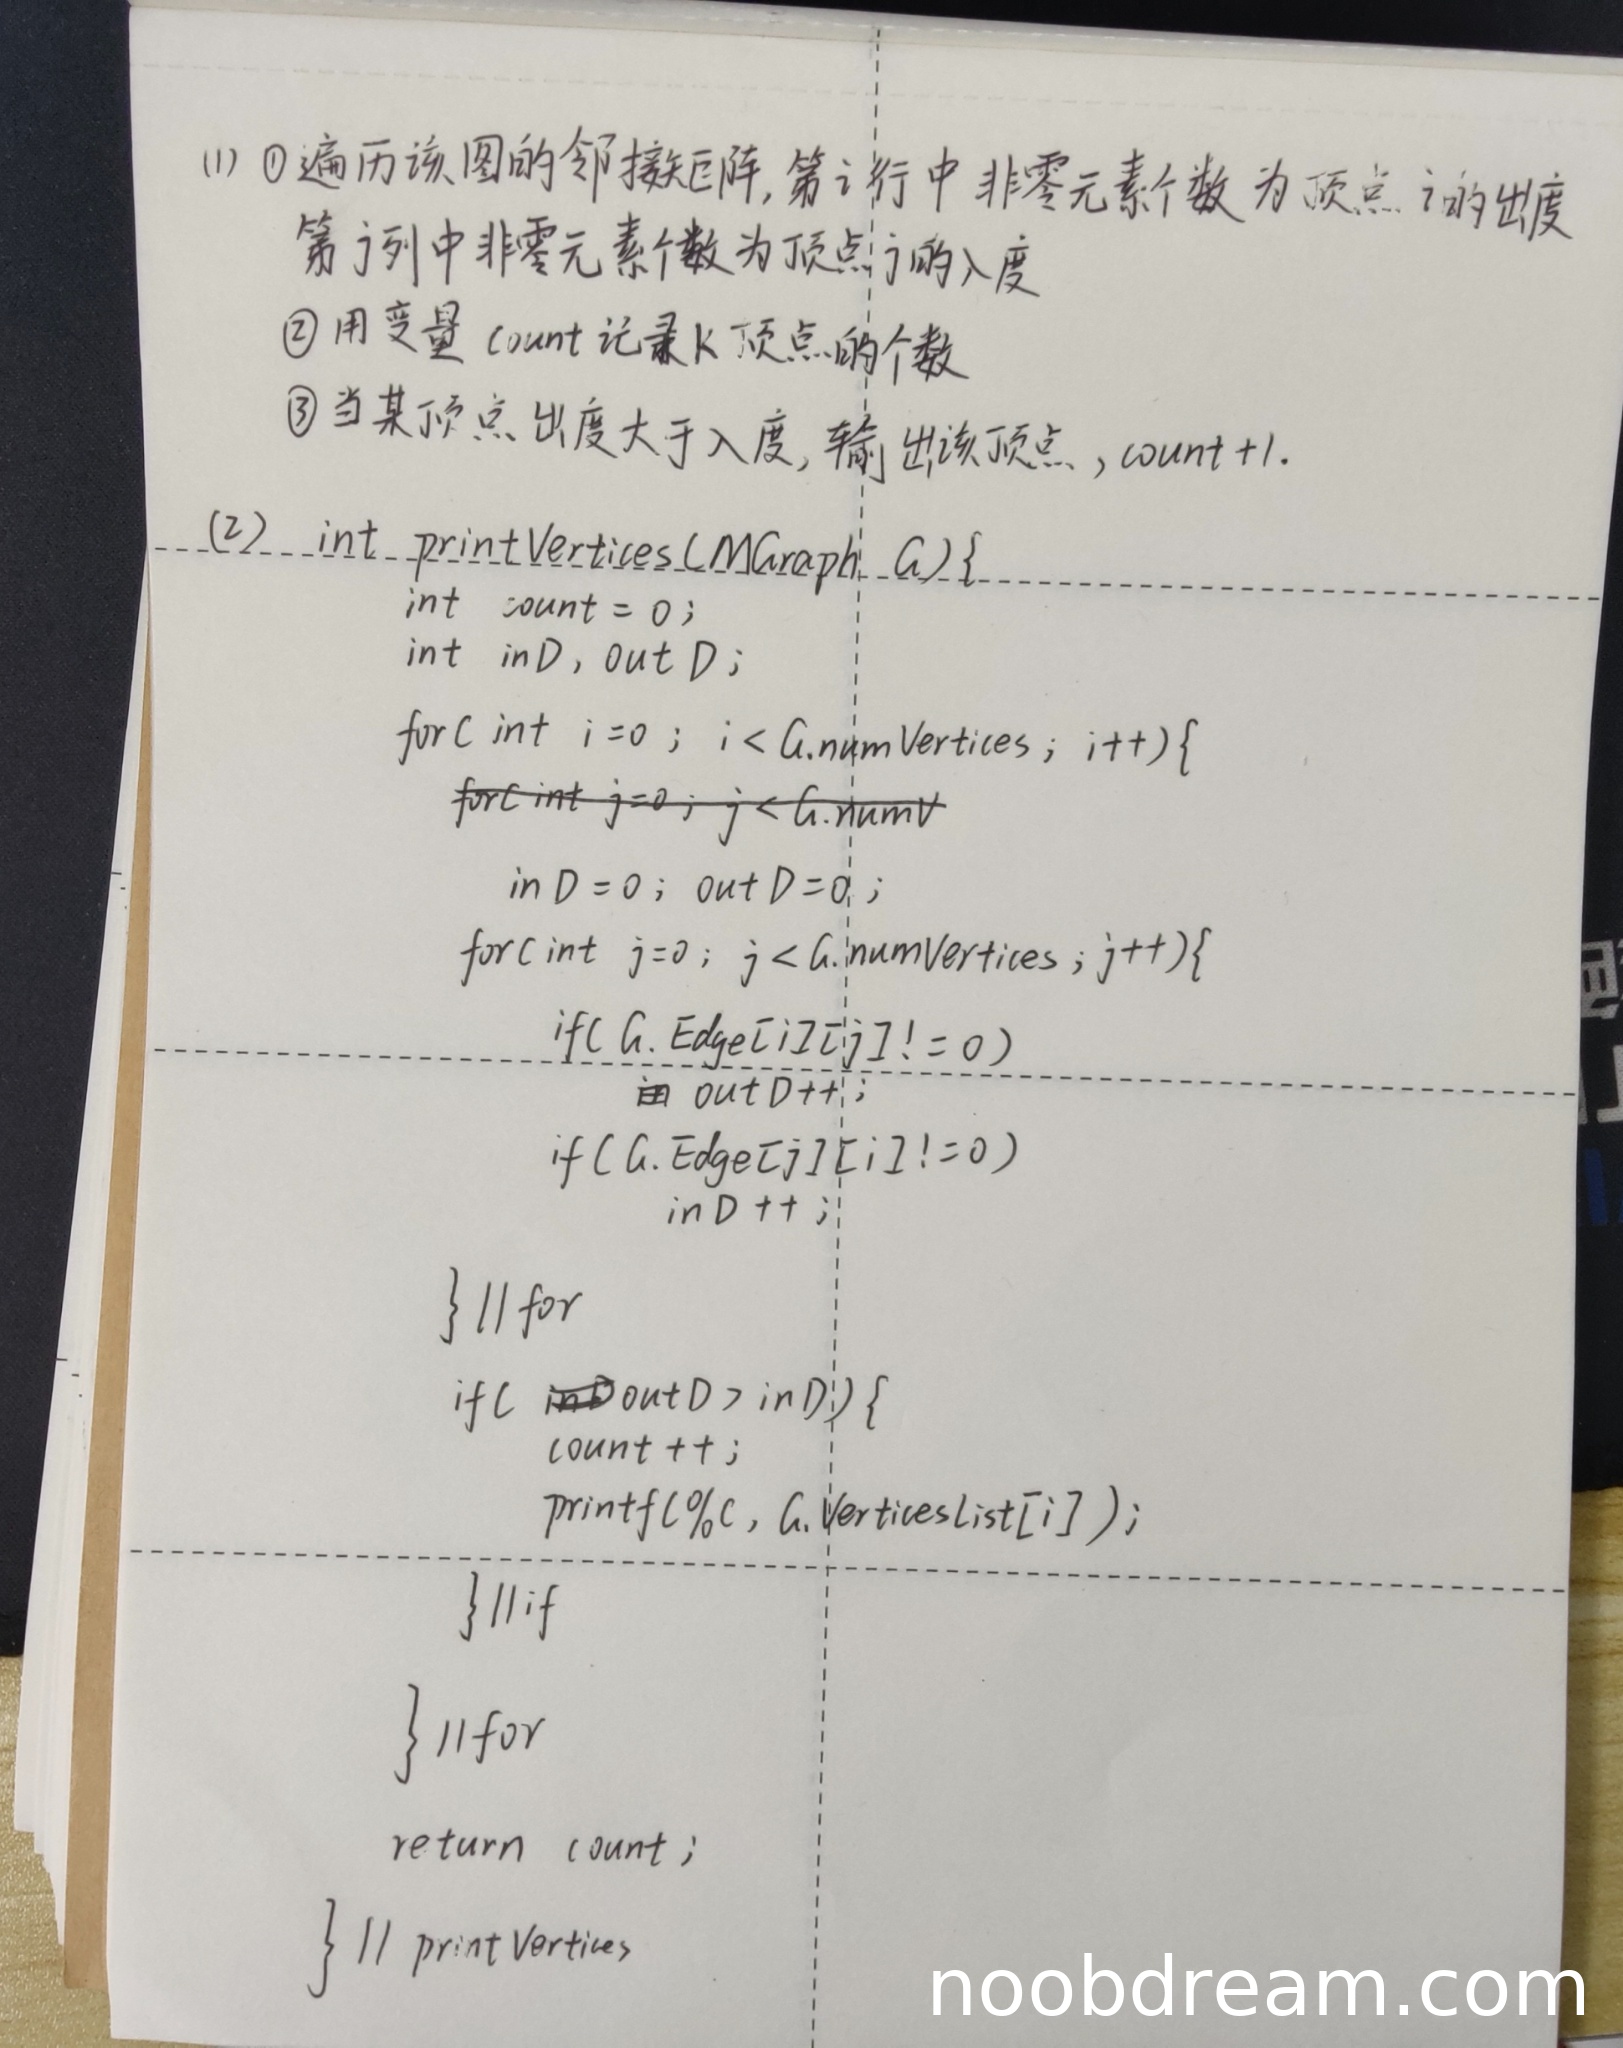 (1) ①遍历该图的邻接矩阵,第i行中非零元素个数为顶点i的出度
第j列中非零元素个数为顶点j的入度
②用变量 count记录K顶点的个数
③当某顶点出度大于入度,输出该顶点,count+1.
(2) int printVertices(MGraph G){
int count=0;
int inD, outD;
for(int i=0; i<G.numVertices; i++){
for(int j=0; j<G.numV
inD=0; outD=0;
for(int j=0; j<G.numVertices; j++){
if(G.Edge[i][j]!=0)
outD++;
if(G.Edge[j][i]!=0)
inD++;
}//for
if( inD outD>inD){
count++;
printf(%c, G.VerticesList[i]);
}//if
}//for
return count;
}// printVertices
noobdream.com